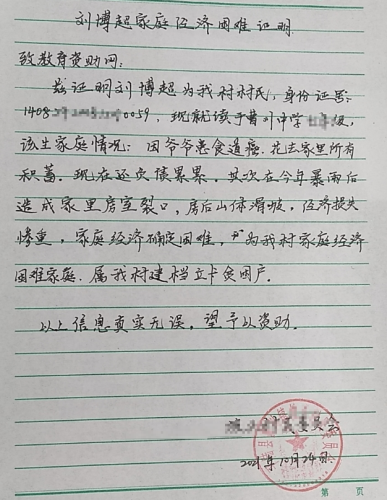 刘博超家庭经济困难证明
致教育资助网：
兹证明刘博超为我村村民，身份证号：
1408 0059，现就读于曹川中学 级，
该生家庭情况：因爷爷患食道癌，花去家里所有
积蓄。现在还欠债累累。其次在今年暴雨后
造成家里房室裂口，房后山体滑坡，经济损失
惨重，家庭经济确定困难，为我村家庭经济
困难家庭．属我村建档立卡贫困户。
以上信息真实无误，望予以资助．
村民委员会
2021年10月24日．
第 页